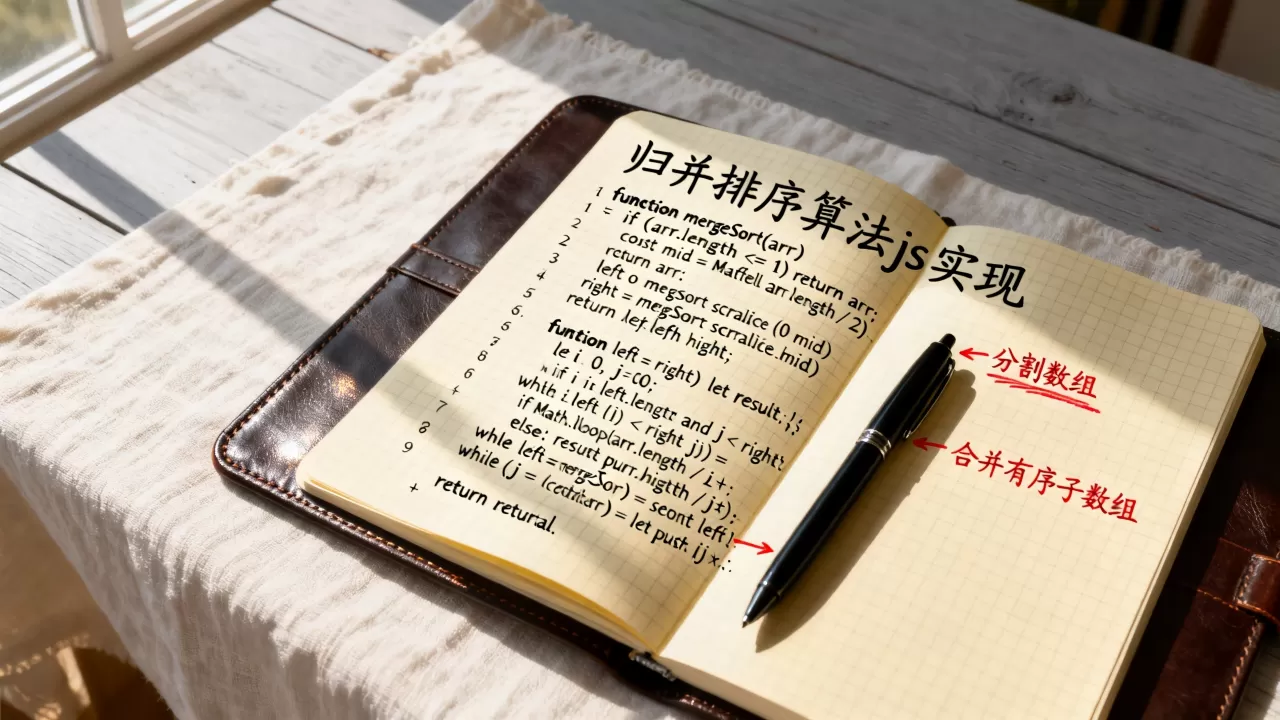 归并排序算法js实现
1 function mergeSort(arr)
1 = if (arr.length <= 1) return arr;
2 cost mid = Maffell arr length / 2).
2 return arr:
3 left o megsort scralice (0 mid)
4 right = megSort scrralice.mid)
5 return left hight;
6 funtion left = right) let result
6 le i. 0, j=co;
if i left.lengtr and j < right
8 whith i left (i) < right j)) =
6 if Math.lloop(arr.length / i+.
+ else: resurt purr.higtth / j+);
7 while left = mergeSor) = seont left
8 while (j = = let push ij
9 return returial.
+
← 分割数组
← 合并有序子数组
→